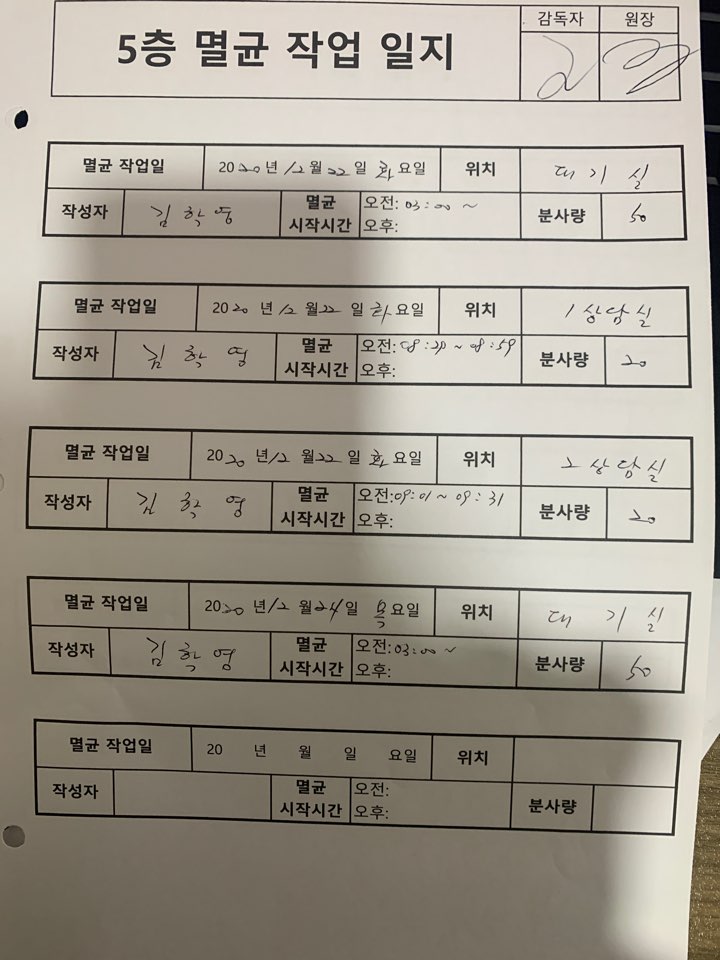 5층 멸균 작업 일지
감독자 원장
멸균 작업일 2020년 12월 22일 화요일 위치 대기실
작성자 김학영 멸균 시작시간 오전: 03:00 ~ 분사량 50
오후:
멸균 작업일 2020년 12월 22일 화요일 위치 1상담실
작성자 김학영 멸균 시작시간 오전: 08:29 ~ 08:59 분사량 20
오후:
멸균 작업일 2020년 12월 22일 화요일 위치 2상담실
작성자 김학영 멸균 시작시간 오전: 09:01 ~ 09:31 분사량 20
오후:
멸균 작업일 2020년 12월 24일 목요일 위치 대기실
작성자 김학영 멸균 시작시간 오전: 03:00 ~ 분사량 50
오후:
멸균 작업일 20 년 월 일 요일 위치
작성자 멸균 시작시간 오전: 분사량
오후: